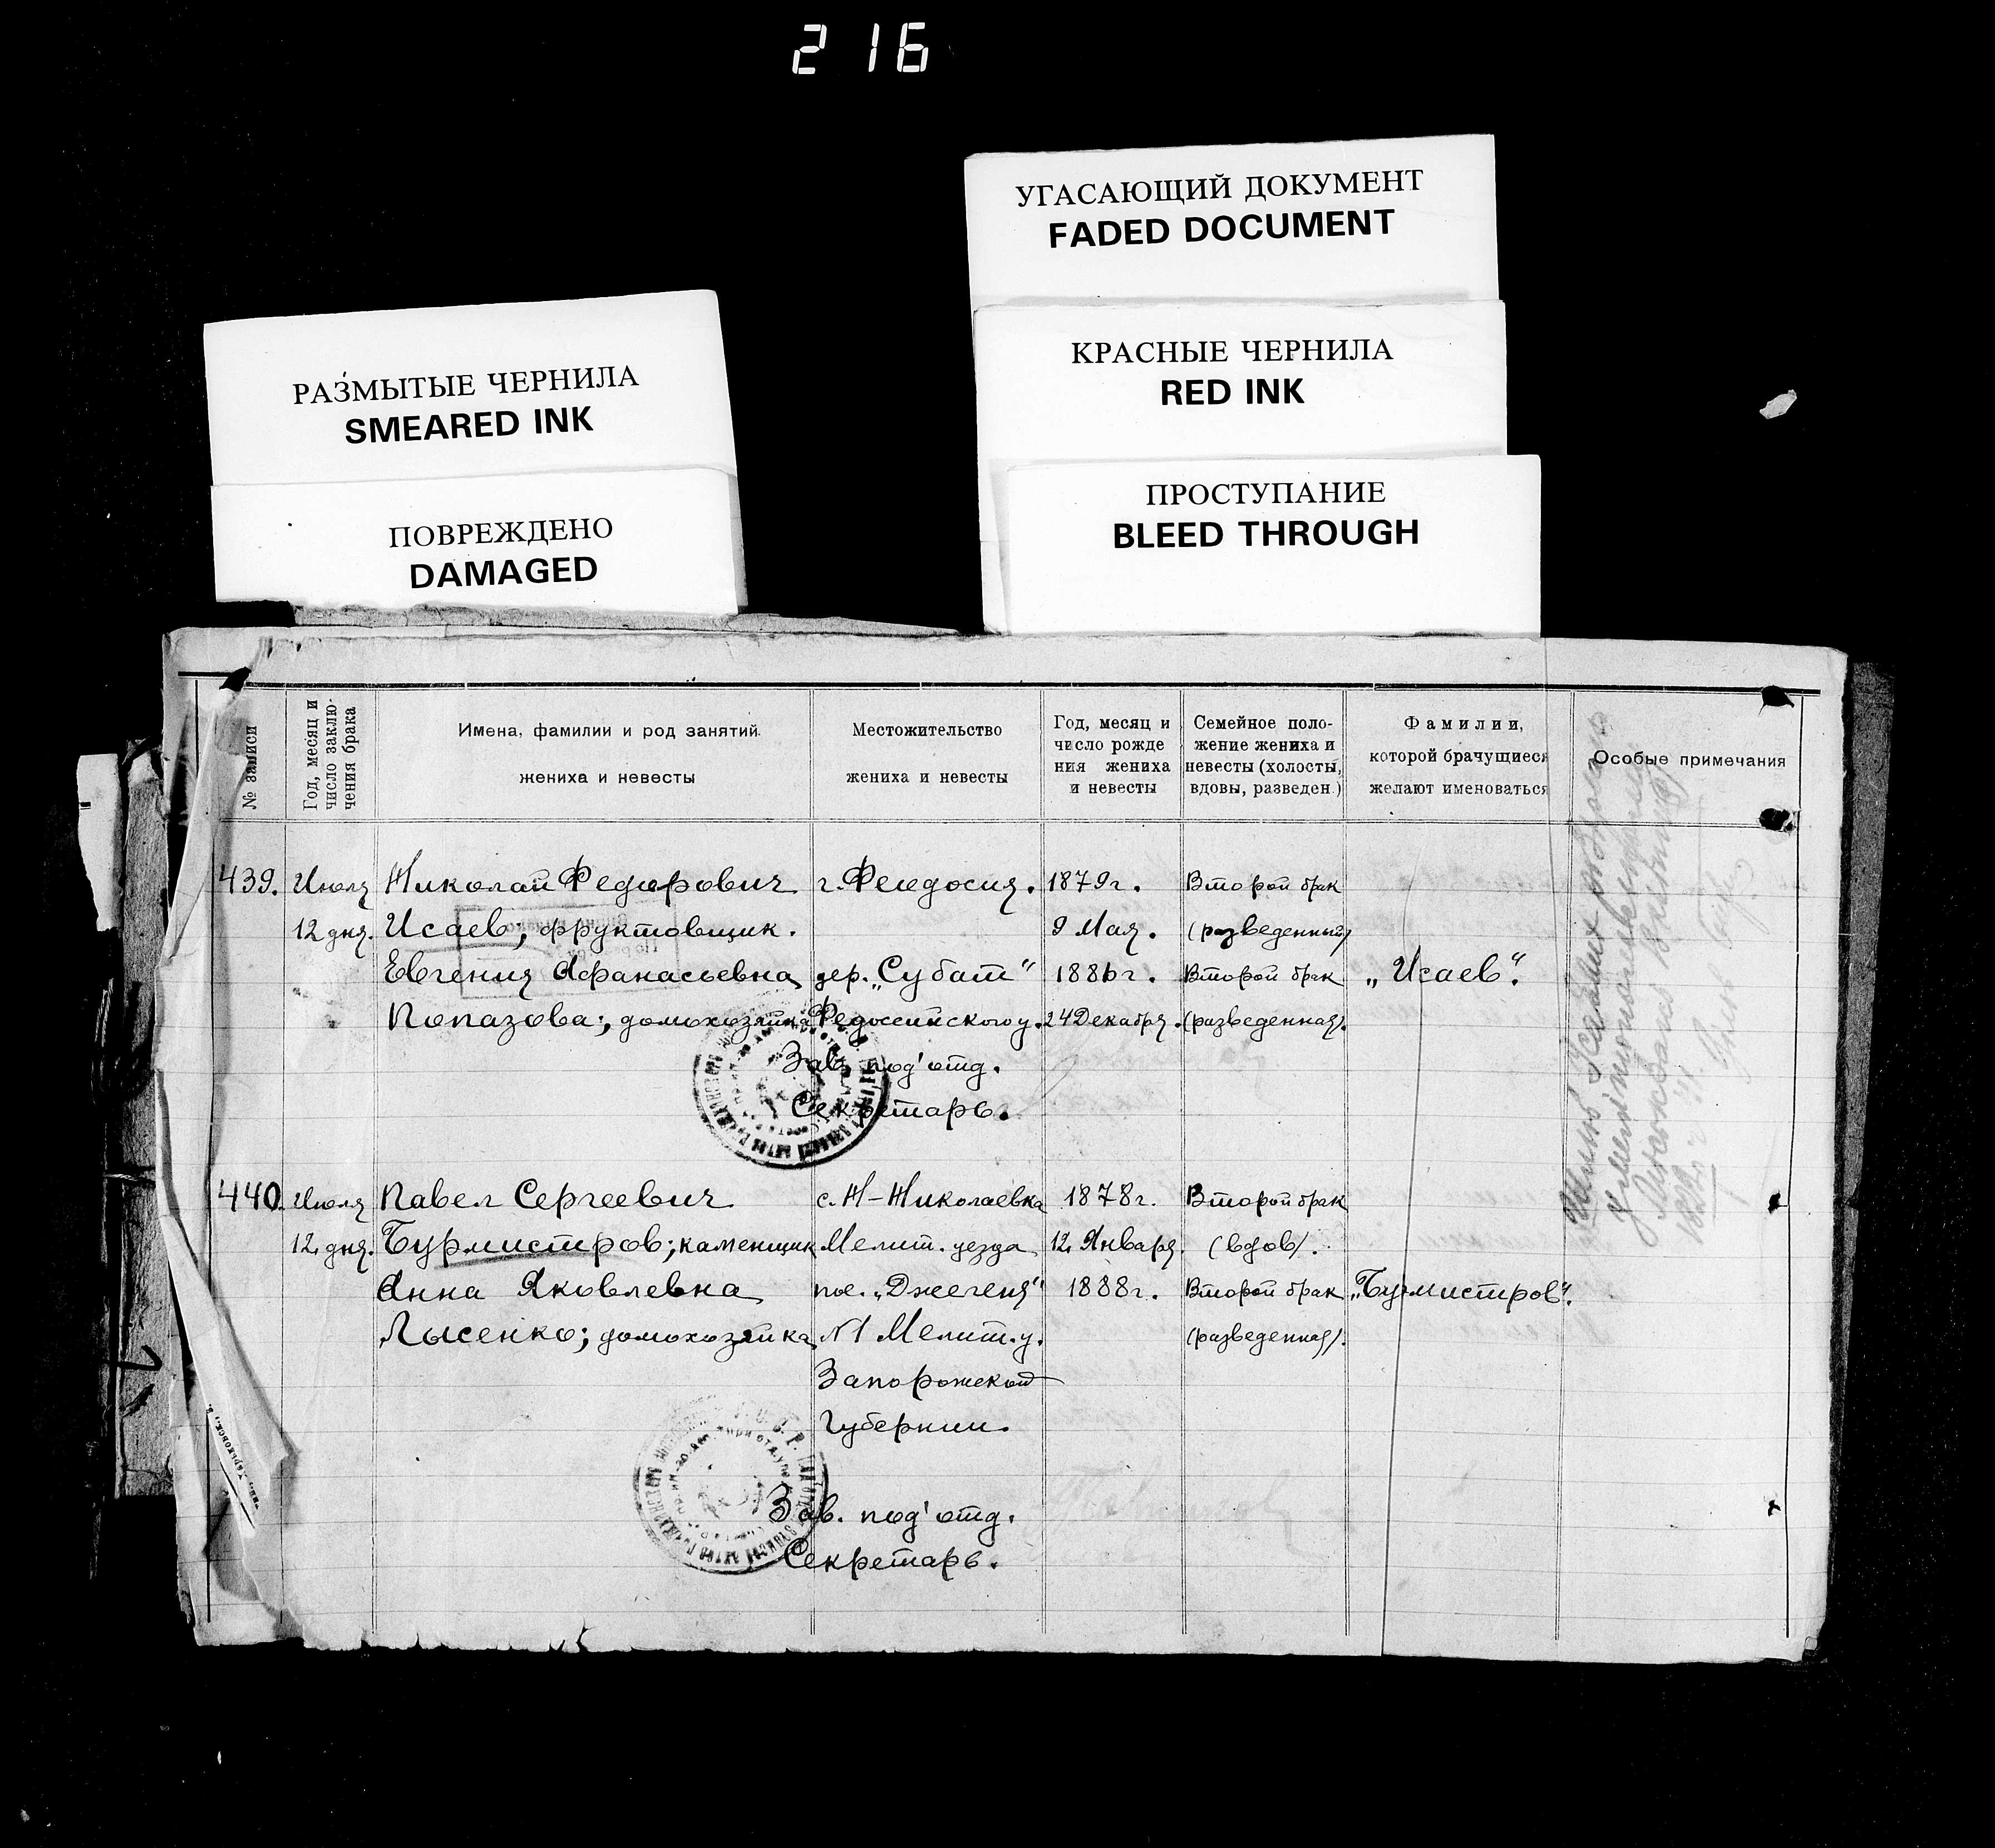 216
УГАСАЮЩИЙ ДОКУМЕНТ
FADED DOCUMENT
КРАСНЫЕ ЧЕРНИЛА
RED INK
РАЗМЫТЫЕ ЧЕРНИЛА
SMEARED INK
ПРОСТУПАНИЕ
BLEED THROUGH
ПОВРЕЖДЕНО
DAMAGED
№ записи
Год, месяц и
число заклю-
чения брака
Имена, фамилии и род занятий
жениха и невесты
Местожительство
жениха и невесты
Год, месяц и
число рожде
ния жениха
и невесты
Семейное поло-
жение жениха и
невесты (холосты,
вдовы, разведен.)
Фамилии,
которой брачущиеся
желают именоваться
Особые примечания
439. Июля Николай Федорович г. Феодосия. 1879г. Второй брак
12 дня. Исаев; фруктовщик. 9 Мая. (разведенный)
Евгения Афанасьевна дер. „Субат“ 1886г. Второй брак „Исаев“.
Попазова; домохозяйка Федоссийского у. 24 Декабря. (разведенная).
Зав. под'отд.
Секретарь.
440. Июля Павел Сергеевич с. Н-Николаевка 1878г. Второй брак
12 дня. Бурмистров; каменщик Мелит. уезда 12 Января. (вдов).
Анна Яковлевна пос. „Джегеня“ 1888г. Второй брак „Бурмистров“.
Лысенко; домохозяйка N1 Мелит. у. (разведенная).
Запорожской
Губернии.
Зав. под'отд.
Секретарь.